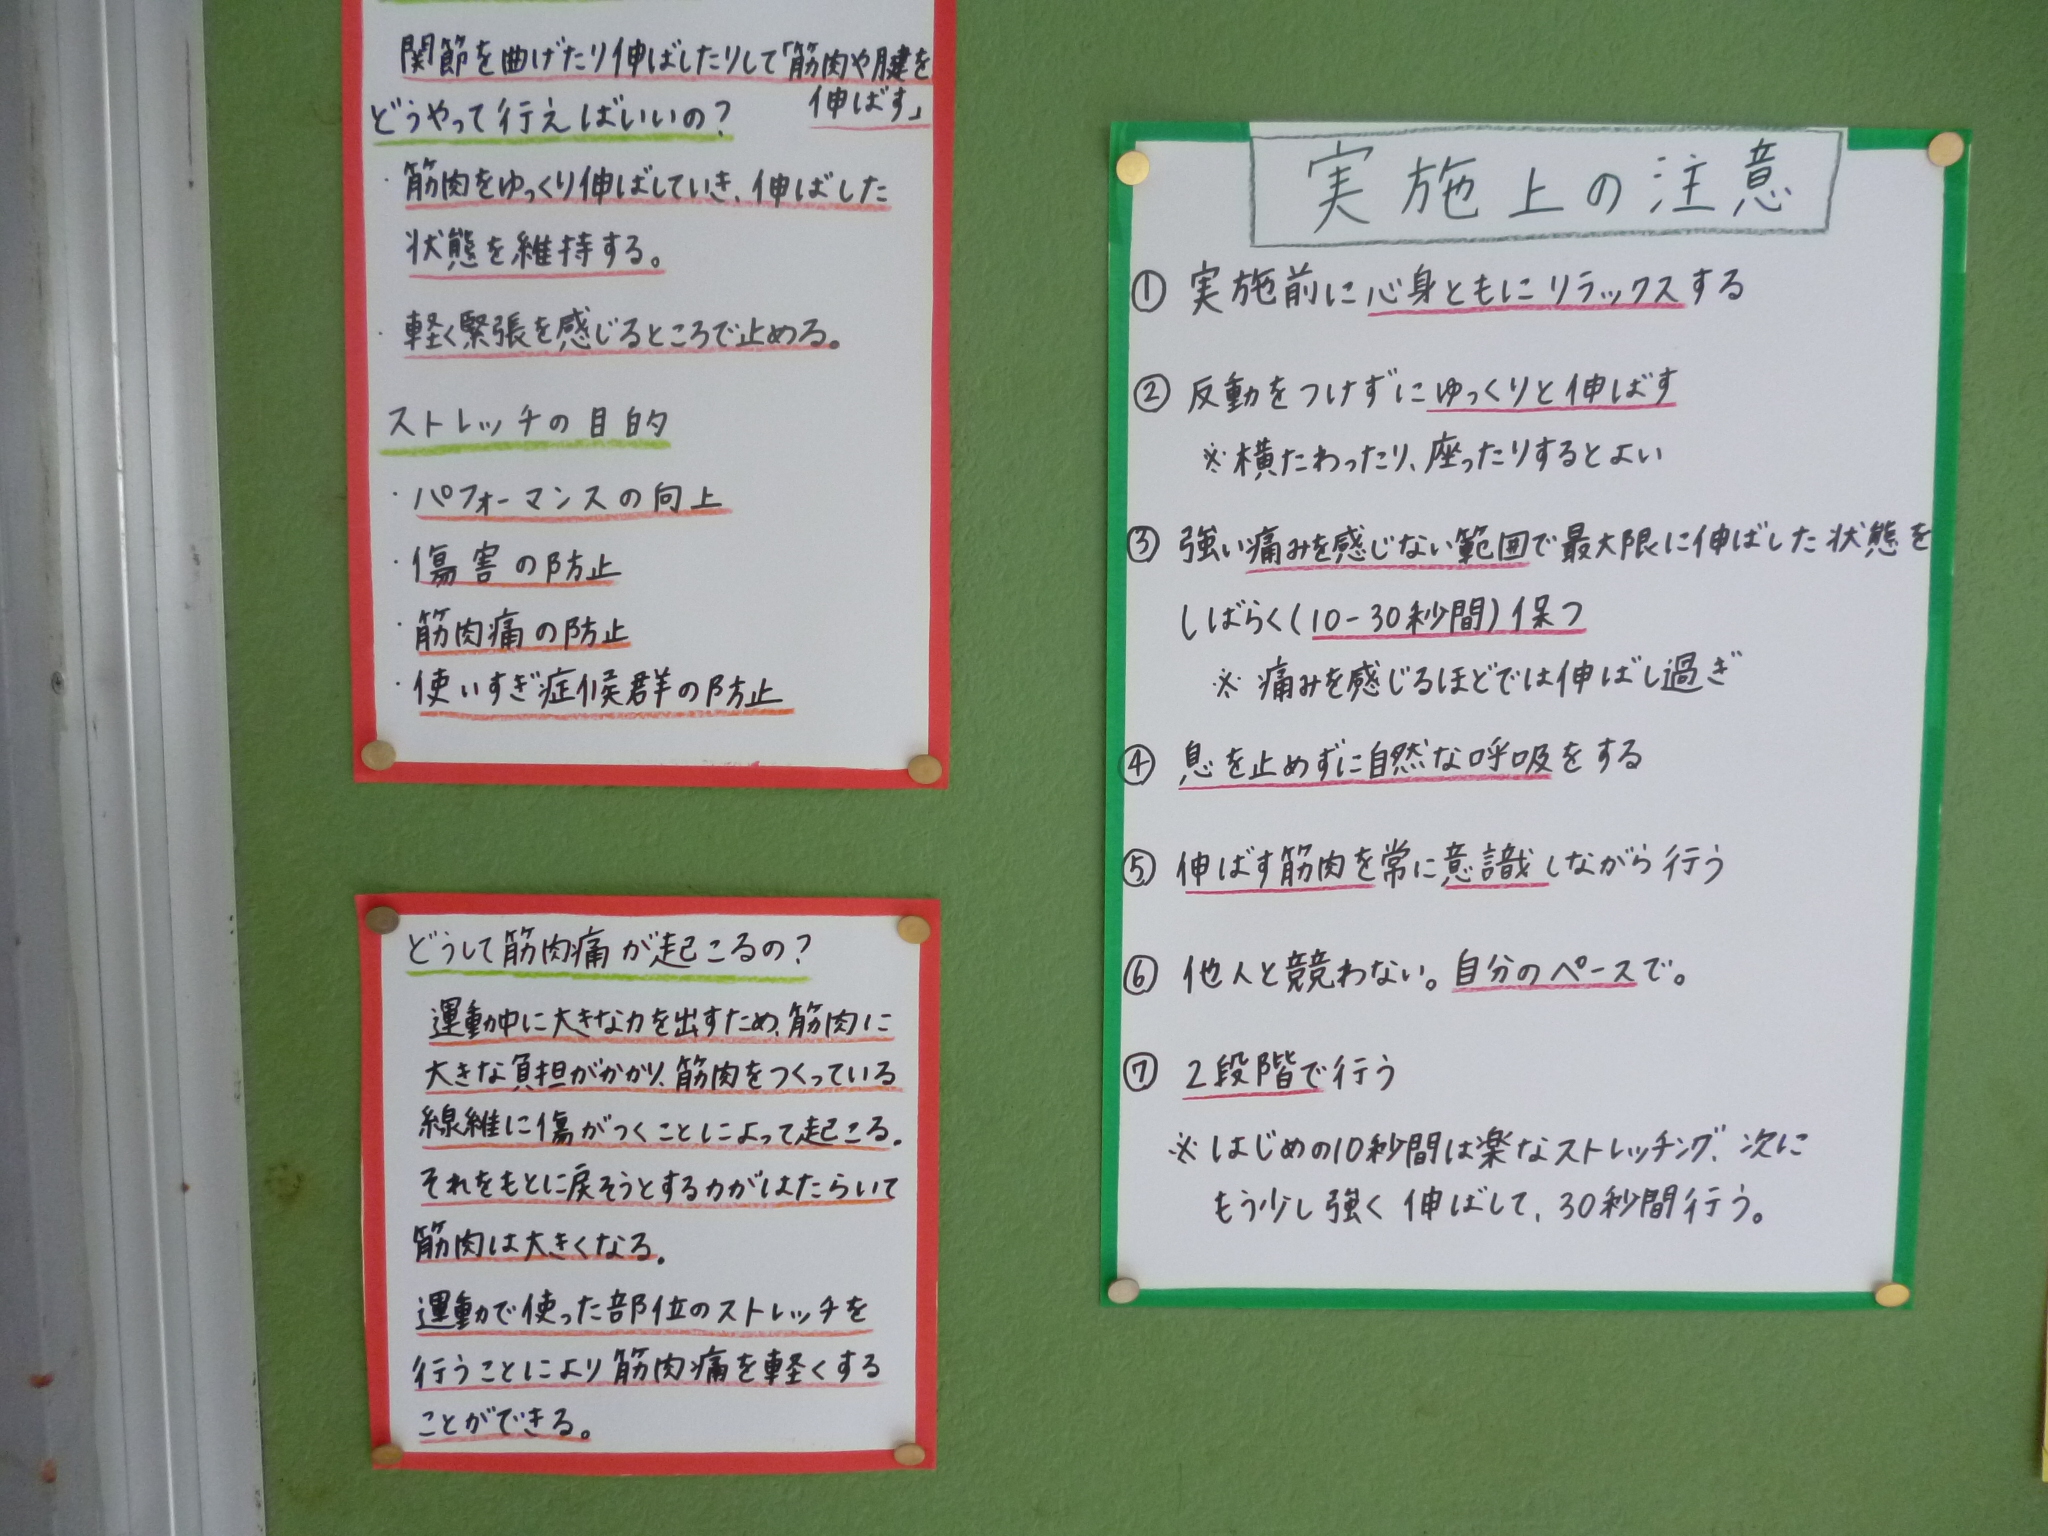 関節を曲げたり伸ばしたりして「筋肉や腱を
伸ばす」
どうやって行えばいいの?
・筋肉をゆっくり伸ばしていき、伸ばした
状態を維持する。
・軽く緊張を感じるところで止める。
ストレッチの目的
・パフォーマンスの向上
・傷害の防止
・筋肉痛の防止
・使いすぎ症候群の防止
どうして筋肉痛が起こるの?
運動中に大きな力を出すため、筋肉に
大きな負担がかかり、筋肉をつくっている
線維に傷がつくことによって起こる。
それをもとに戻そうとする力がはたらいて
筋肉は大きくなる。
運動で使った部位のストレッチを
行うことにより筋肉痛を軽くする
ことができる。
実施上の注意
① 実施前に心身ともにリラックスする
② 反動をつけずにゆっくりと伸ばす
※横たわったり、座ったりするとよい
③ 強い痛みを感じない範囲で最大限に伸ばした状態を
しばらく(10-30秒間)保つ
※ 痛みを感じるほどでは伸ばし過ぎ
④ 息を止めずに自然な呼吸をする
⑤ 伸ばす筋肉を常に意識しながら行う
⑥ 他人と競わない。自分のペースで。
⑦ 2段階で行う
※はじめの10秒間は楽なストレッチング、次に
もう少し強く伸ばして、30秒間行う。